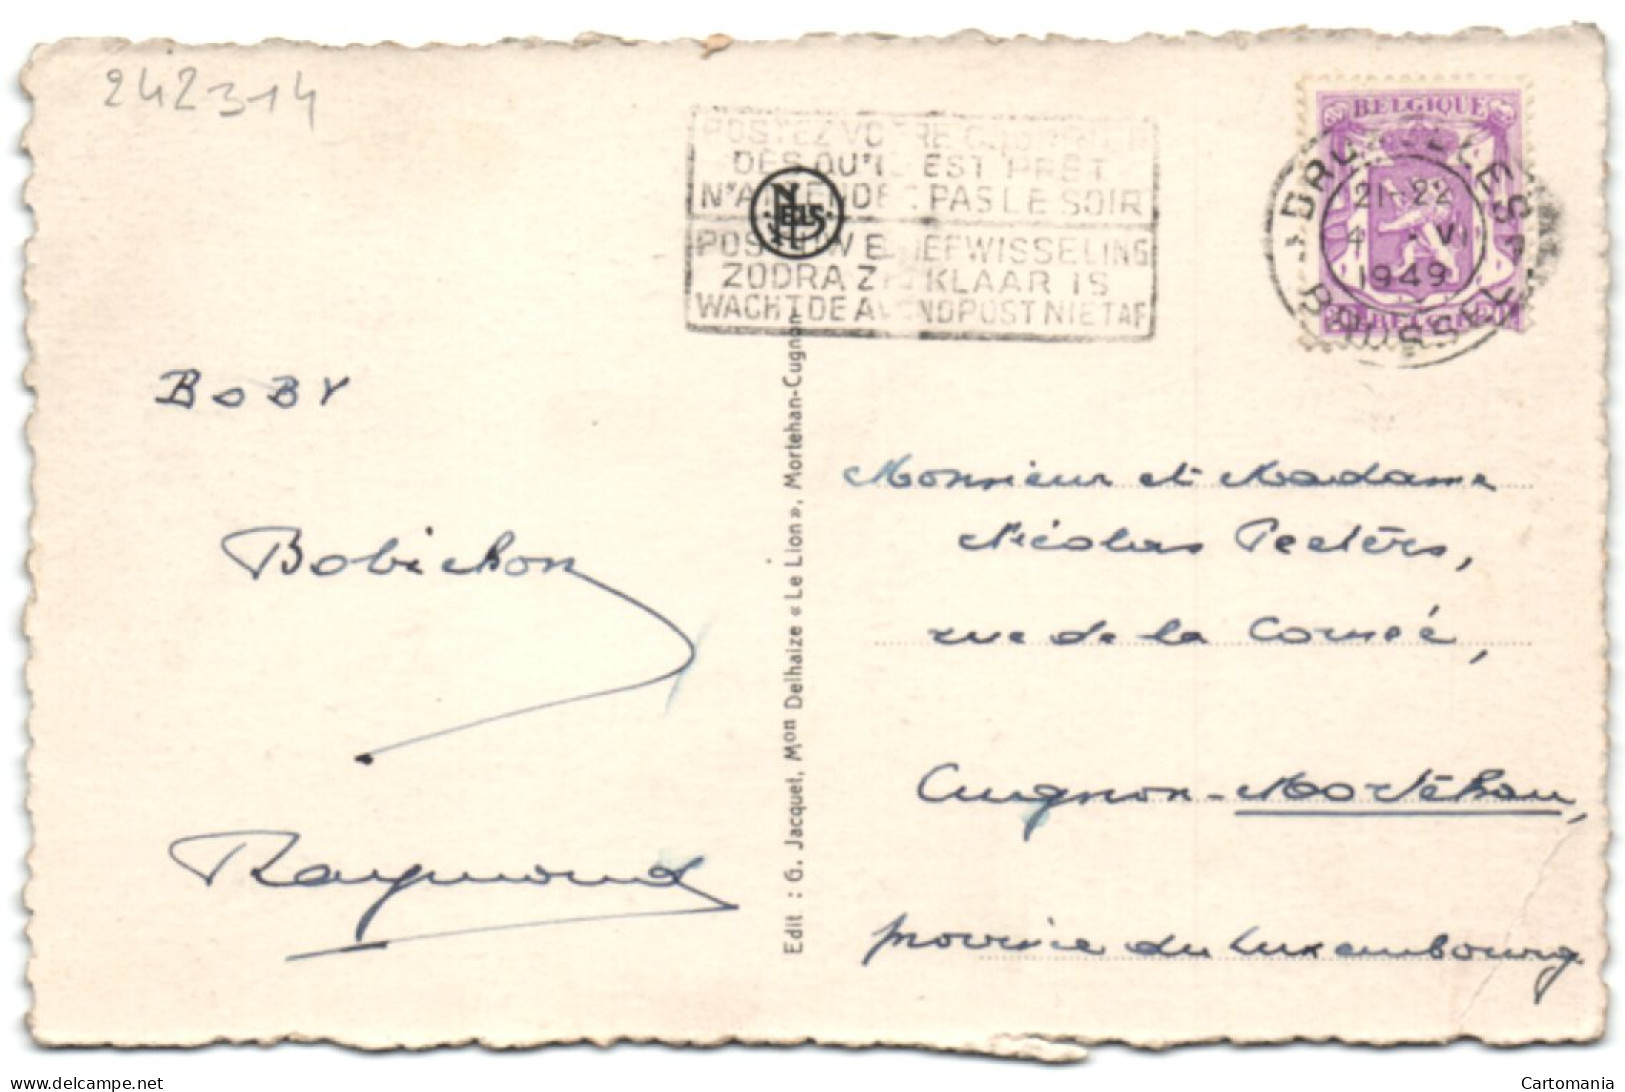 242314
POSTEZ VOTRE COURRIER
DES QU'IL EST PRET
N'ATTENDEZ PAS LE SOIR
POST UW BRIEFWISSELING
ZODRA ZIJ KLAAR IS
WACHT DE AVONDPOST NIET AF
NELS
BELGIQUE
BRUXELLES
21-22
4 VI
1949
BRUSSEL
BOBY
Bobichon
Raymond
Edit : G. Jacquet, Mon Delhaize « Le Lion », Mortehan-Cugnon
Monsieur et Madame
Nicolas Peeters,
rue de la
Cugnon-Mortéhan,
province du Luxembourg
delcampe.net
Cartomania